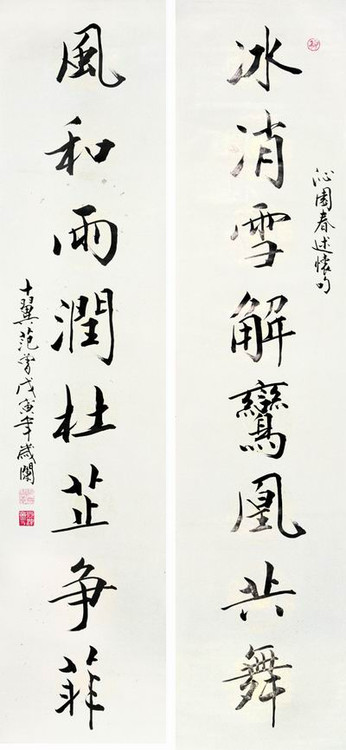 沁園春述懷句
冰消雪解鸞凰共舞
風和雨潤杜芷争菲
十翼范曾戊寅年歲闌